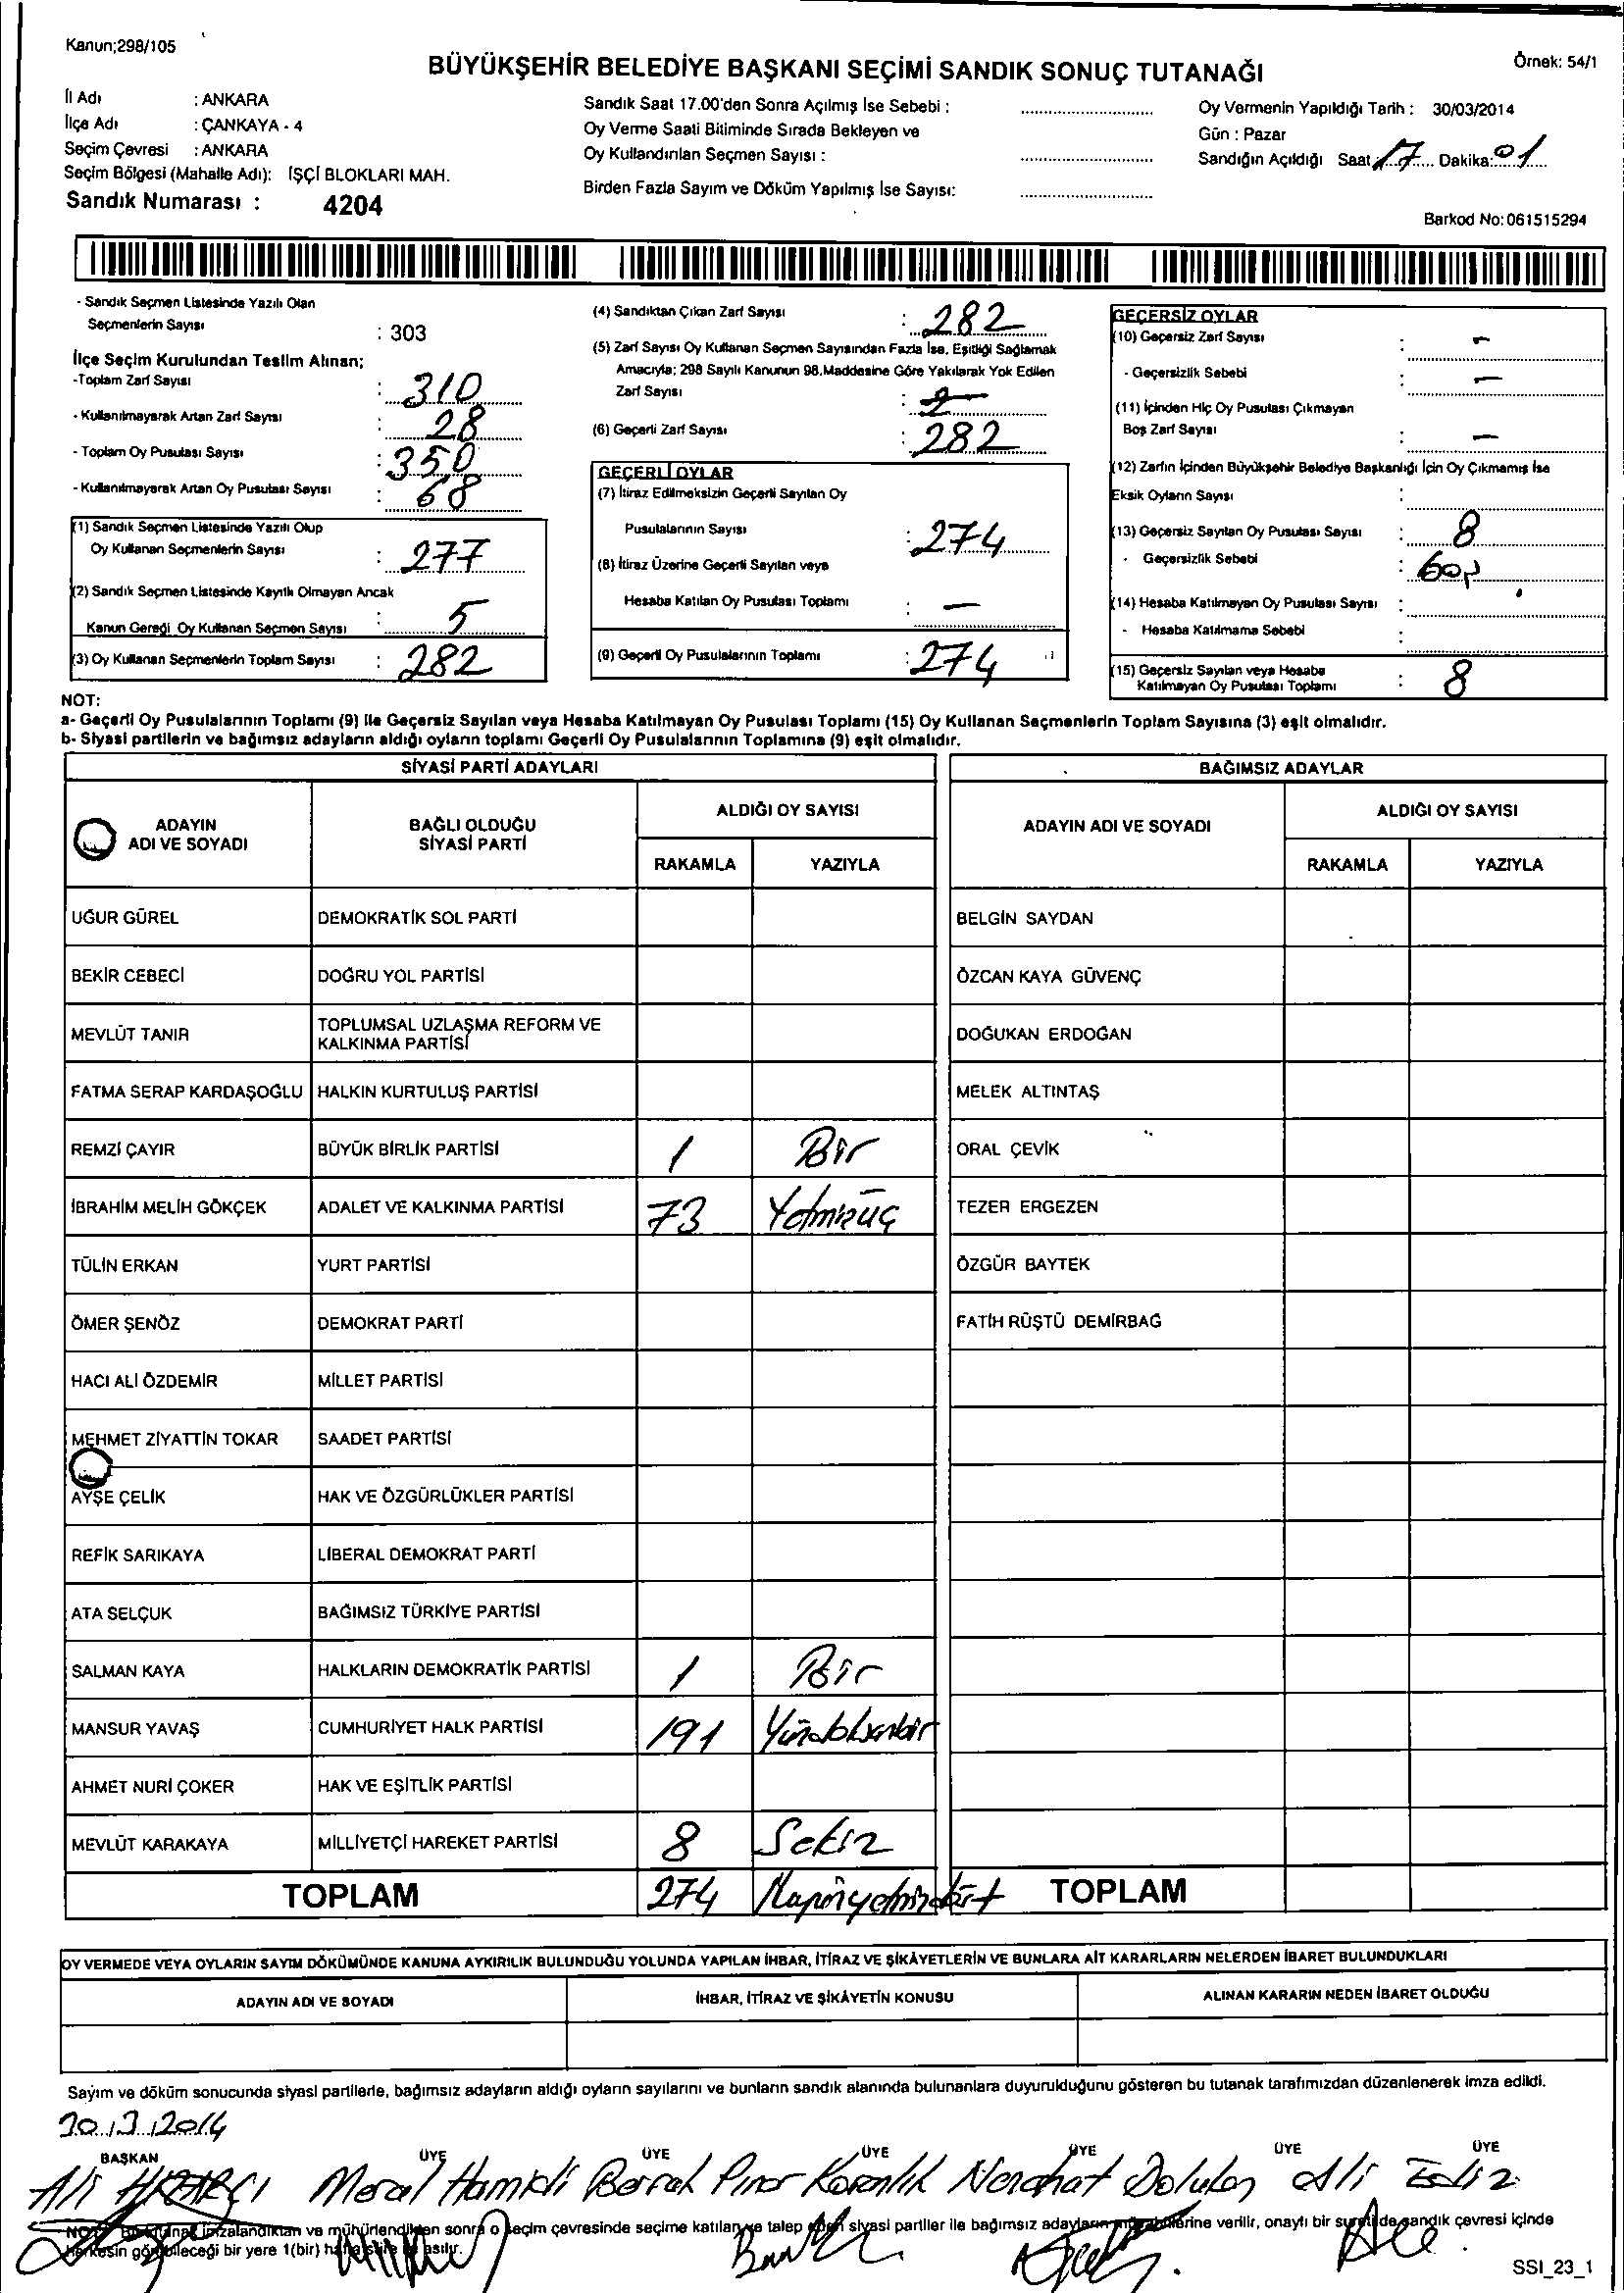 Kanun;298/105
Örnek: 54/1
BÜYÜKŞEHİR BELEDİYE BAŞKANI SEÇİMİ SANDIK SONUÇ TUTANAĞI
İl Adı : ANKARA
İlçe Adı : ÇANKAYA - 4
Seçim Çevresi : ANKARA
Seçim Bölgesi (Mahalle Adı): İŞÇİ BLOKLARI MAH.
Sandık Numarası : 4204
Sandık Saat 17.00'den Sonra Açılmış İse Sebebi :
Oy Verme Saati Bitiminde Sırada Bekleyen ve
Oy Kullandırılan Seçmen Sayısı :
Birden Fazla Sayım ve Döküm Yapılmış İse Sayısı:
Oy Vermenin Yapıldığı Tarih : 30/03/2014
Gün : Pazar
Sandığın Açıldığı Saat 17 Dakika: 01
Barkod No: 061515294
- Sandık Seçmen Listesinde Yazılı Olan
Seçmenlerin Sayısı : 303
İlçe Seçim Kurulundan Teslim Alınan;
-Toplam Zarf Sayısı : 310
- Kullanılmayarak Artan Zarf Sayısı : 28
- Toplam Oy Pusulası Sayısı : 350
- Kullanılmayarak Artan Oy Pusulası Sayısı : 68
(1) Sandık Seçmen Listesinde Yazılı Olup
Oy Kullanan Seçmenlerin Sayısı : 277
(2) Sandık Seçmen Listesinde Kayıtlı Olmayan Ancak
Kanun Gereği Oy Kullanan Seçmen Sayısı : 5
(3) Oy Kullanan Seçmenlerin Toplam Sayısı : 282
(4) Sandıktan Çıkan Zarf Sayısı : 282
(5) Zarf Sayısı Oy Kullanan Seçmen Sayısından Fazla İse, Eşitliği Sağlamak
Amacıyla; 298 Sayılı Kanunun 98.Maddesine Göre Yakılarak Yok Edilen
Zarf Sayısı :
(6) Geçerli Zarf Sayısı : 282
GEÇERLİ OYLAR
(7) İtiraz Edilmeksizin Geçerli Sayılan Oy
Pusulalarının Sayısı : 274
(8) İtiraz Üzerine Geçerli Sayılan veya
Hesaba Katılan Oy Pusulası Toplamı : —
(9) Geçerli Oy Pusulalarının Toplamı : 274
GEÇERSİZ OYLAR
(10) Geçersiz Zarf Sayısı : —
- Geçersizlik Sebebi : —
(11) İçinden Hiç Oy Pusulası Çıkmayan
Boş Zarf Sayısı : —
(12) Zarfın İçinden Büyükşehir Belediye Başkanlığı İçin Oy Çıkmamış İse
Eksik Oyların Sayısı :
(13) Geçersiz Sayılan Oy Pusulası Sayısı : 8
- Geçersizlik Sebebi :
(14) Hesaba Katılmayan Oy Pusulası Sayısı :
- Hesaba Katılmama Sebebi :
(15) Geçersiz Sayılan veya Hesaba
Katılmayan Oy Pusulası Toplamı : 8
NOT:
a- Geçerli Oy Pusulalarının Toplamı (9) ile Geçersiz Sayılan veya Hesaba Katılmayan Oy Pusulası Toplamı (15) Oy Kullanan Seçmenlerin Toplam Sayısına (3) eşit olmalıdır.
b- Siyasi partilerin ve bağımsız adayların aldığı oyların toplamı Geçerli Oy Pusulalarının Toplamına (9) eşit olmalıdır.
SİYASİ PARTİ ADAYLARI BAĞIMSIZ ADAYLAR
ADAYIN ADI VE SOYADI BAĞLI OLDUĞU SİYASİ PARTİ ALDIĞI OY SAYISI ADAYIN ADI VE SOYADI ALDIĞI OY SAYISI
RAKAMLA YAZIYLA RAKAMLA YAZIYLA
UĞUR GÜREL DEMOKRATİK SOL PARTİ BELGİN SAYDAN
BEKİR CEBECİ DOĞRU YOL PARTİSİ ÖZCAN KAYA GÜVENÇ
MEVLÜT TANIR TOPLUMSAL UZLAŞMA REFORM VE KALKINMA PARTİSİ DOĞUKAN ERDOĞAN
FATMA SERAP KARDAŞOĞLU HALKIN KURTULUŞ PARTİSİ MELEK ALTINTAŞ
REMZİ ÇAYIR BÜYÜK BİRLİK PARTİSİ 1 Bir ORAL ÇEVİK
İBRAHİM MELİH GÖKÇEK ADALET VE KALKINMA PARTİSİ 73 Yetmişüç TEZER ERGEZEN
TÜLİN ERKAN YURT PARTİSİ ÖZGÜR BAYTEK
ÖMER ŞENÖZ DEMOKRAT PARTİ FATİH RÜŞTÜ DEMİRBAĞ
HACI ALİ ÖZDEMİR MİLLET PARTİSİ
MEHMET ZİYATTİN TOKAR SAADET PARTİSİ
AYŞE ÇELİK HAK VE ÖZGÜRLÜKLER PARTİSİ
REFİK SARIKAYA LİBERAL DEMOKRAT PARTİ
ATA SELÇUK BAĞIMSIZ TÜRKİYE PARTİSİ
SALMAN KAYA HALKLARIN DEMOKRATİK PARTİSİ 1 Bir
MANSUR YAVAŞ CUMHURİYET HALK PARTİSİ 191
AHMET NURİ ÇOKER HAK VE EŞİTLİK PARTİSİ
MEVLÜT KARAKAYA MİLLİYETÇİ HAREKET PARTİSİ 8 Sekiz
TOPLAM 274 TOPLAM
OY VERMEDE VEYA OYLARIN SAYIM DÖKÜMÜNDE KANUNA AYKIRILIK BULUNDUĞU YOLUNDA YAPILAN İHBAR, İTİRAZ VE ŞİKÂYETLERİN VE BUNLARA AİT KARARLARIN NELERDEN İBARET BULUNDUKLARI
ADAYIN ADI VE SOYADI İHBAR, İTİRAZ VE ŞİKÂYETİN KONUSU ALINAN KARARIN NEDEN İBARET OLDUĞU
Sayım ve döküm sonucunda siyasi partilerle, bağımsız adayların aldığı oyların sayılarını ve bunların sandık alanında bulunanlara duyurulduğunu gösteren bu tutanak tarafımızdan düzenlenerek imza edildi.
30.3.2014
BAŞKAN ÜYE ÜYE ÜYE ÜYE ÜYE ÜYE
Ali Meral Hamidi Berak Pınar Karanlık Nerchat Ali
imzalandıktan ve mühürlendikten sonra o seçim çevresinde seçime katılan ve talep eden siyasi partiler ile bağımsız adayların verilir, onaylı bir sureti de sandık çevresi içinde
herkesin görebileceği bir yere 1(bir) hafta süre ile asılır.
SSI_23_1